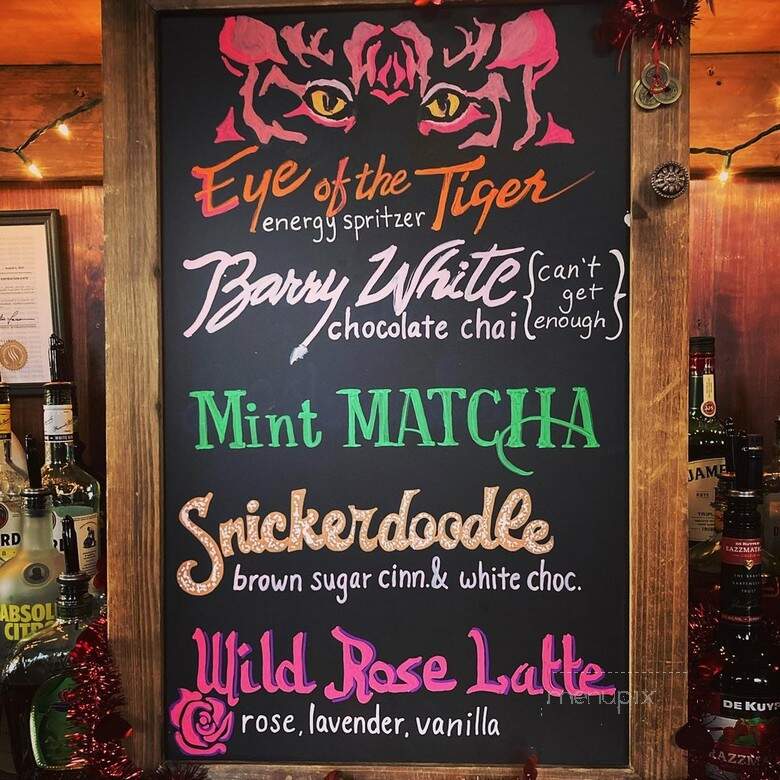 Eye of the Tiger
energy spritzer
Barry White {can't
get
enough}
chocolate chai
Mint MATCHA
Snickerdoodle
brown sugar cinn. & white choc.
Wild Rose Latte
rose, lavender, vanilla
menupix
ABSOL
CITR
JAME
DE KUYPER
RAZZMAT
DE KUY
RAZZM